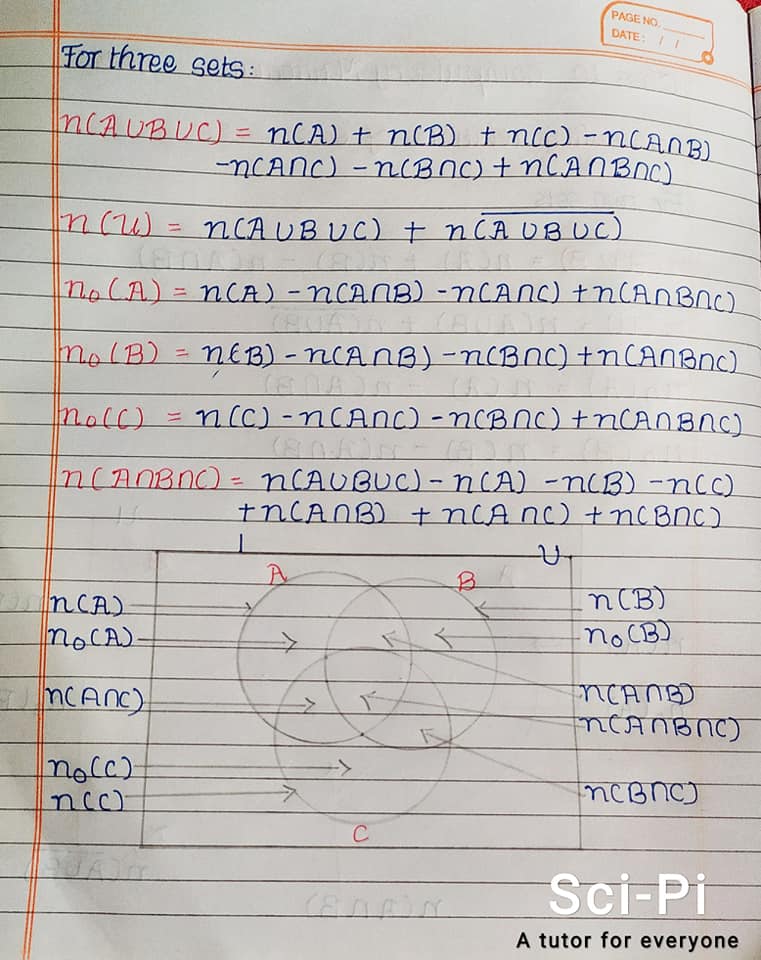 PAGE NO.
DATE: / /
For three sets:
n(A∪B∪C) = n(A) + n(B) + n(C) - n(A∩B)
-n(A∩C) - n(B∩C) + n(A∩B∩C)
n(U) = n(A∪B∪C) + n(\overline{A∪B∪C})
n₀(A) = n(A) - n(A∩B) - n(A∩C) + n(A∩B∩C)
n₀(B) = n(B) - n(A∩B) - n(B∩C) + n(A∩B∩C)
n₀(C) = n(C) - n(A∩C) - n(B∩C) + n(A∩B∩C)
n(A∩B∩C) = n(A∪B∪C) - n(A) - n(B) - n(C)
+n(A∩B) + n(A∩C) + n(B∩C)
U
A B
n(A) n(B)
n₀(A) n₀(B)
n(A∩C) n(A∩B)
n(A∩B∩C)
n₀(C)
n(C) n(B∩C)
C
Sci-Pi
A tutor for everyone